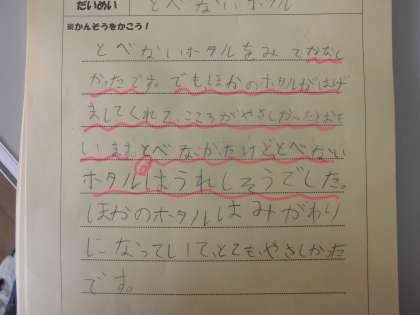 だいめい とべないホタル
※かんそうをかこう！
とべないホタルをみてかなし
かったです。でも、ほかのホタルがはげ
ましてくれて、こころがやさしかったとおも
います。とべなかたけどとべない
っ
ホタルはうれしそうでした。
ほかのホタルはみがわり
になってていて、とても、やさしかった
です。